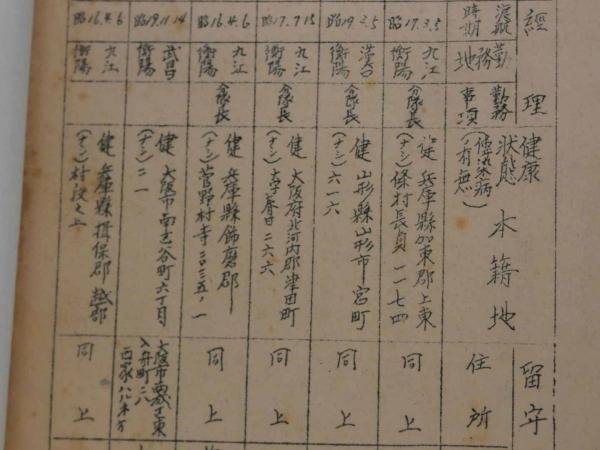 經理
留守
渡航時期
勤務地
勤務事項
健康状態
(傳染病ノ有無)
本籍地
住所
昭17.3.5
九江
衡陽
分隊長
健
(ナシ)
兵庫縣加東郡上東
條村長貞一一七四
同上
昭19.3.5
漢口
衡陽
分隊長
健
(ナシ)
山形縣山形市宮町
六一六
同上
昭17.7.15
九江
衡陽
分隊長
健
(ナシ)
大阪府北河内郡津田町
大字春日二六六
同上
昭16.4.6
九江
衡陽
分隊長
健
(ナシ)
兵庫縣飾磨郡
菅野村寺二〇三五ノ一
同上
昭19.11.14
武昌
衡陽
健
(ナシ)
大阪市南区谷町六丁目
二一
大阪市
東
入舟町二八
西
昭16.4.6
九江
衡陽
健
(ナシ)
兵庫縣揖保郡越部
村段之上
同上